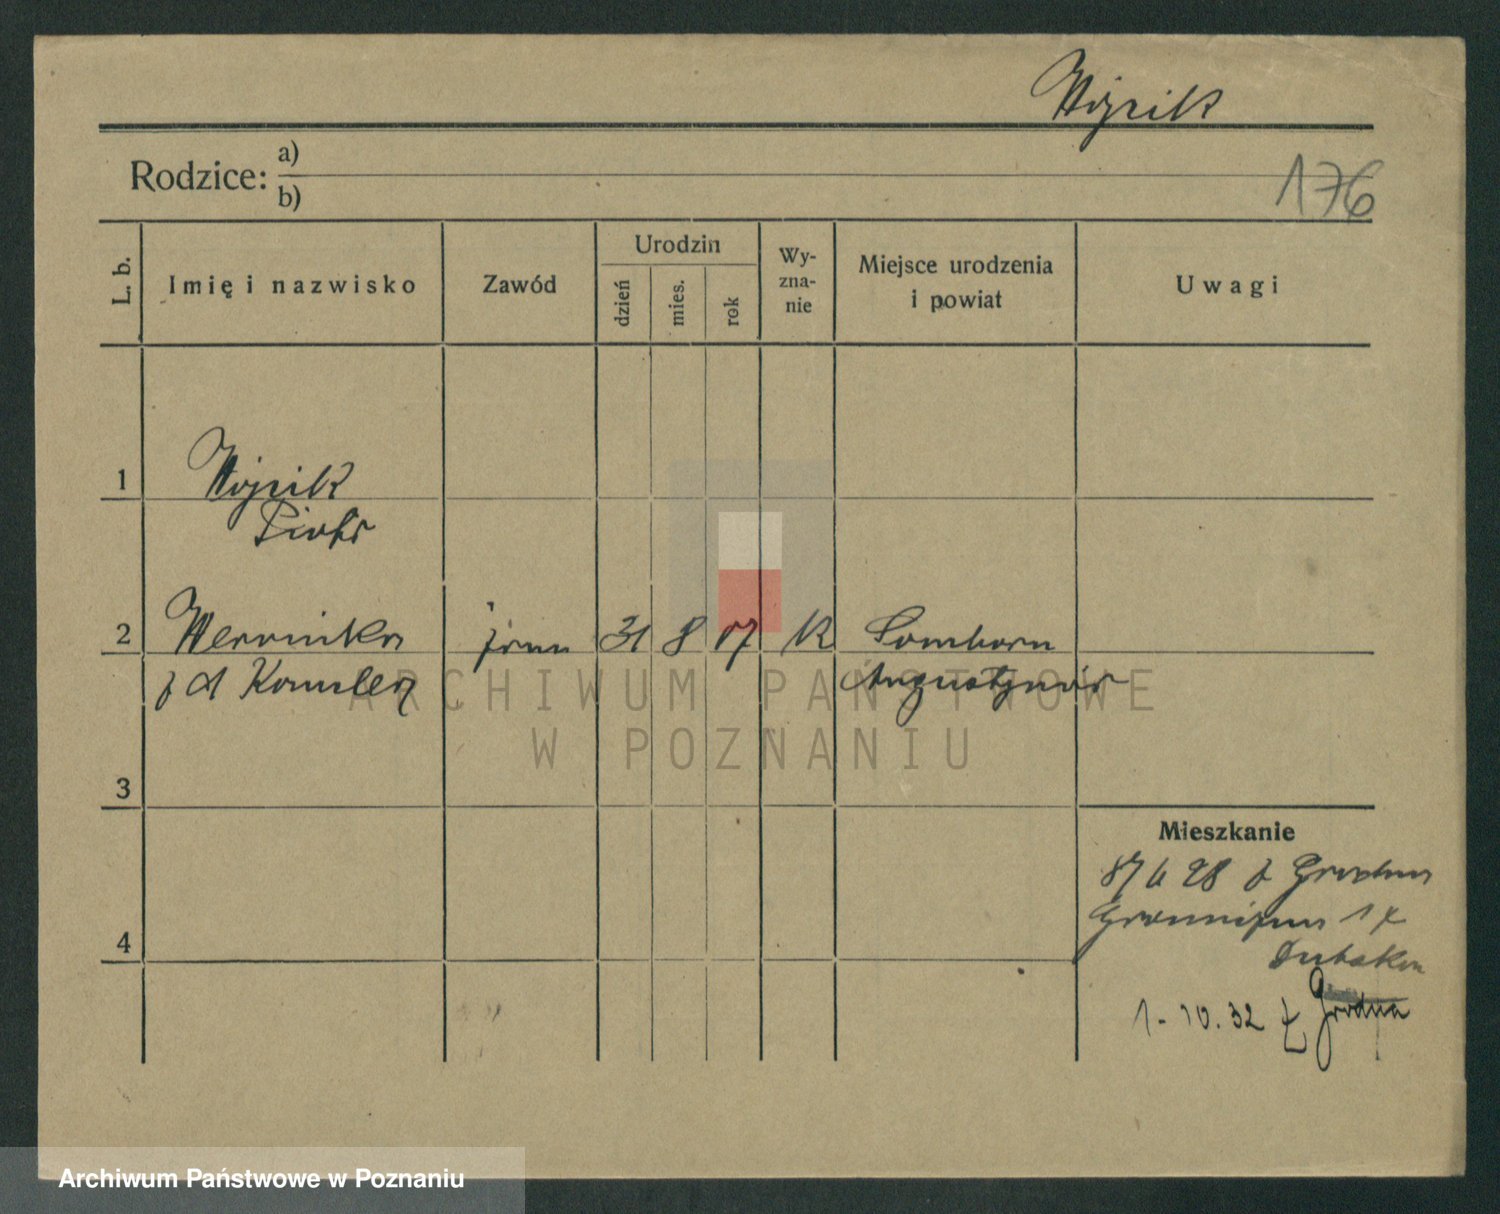 Wójcik
Rodzice: a)
b)
176
L. b.
Imię i nazwisko
Zawód
Urodzin
dzień
mies.
rok
Wy-
zna-
nie
Miejsce urodzenia
i powiat
Uwagi
1
Wójcik
Piotr
2
Weronika
żona
31
8
07
K
Lomborn
z d
Augustynów
3
Mieszkanie
28 z Grodna
4
1-10.32 z Grodna
ARCHIWUM PAŃSTWOWE
W POZNANIU
Archiwum Państwowe w Poznaniu